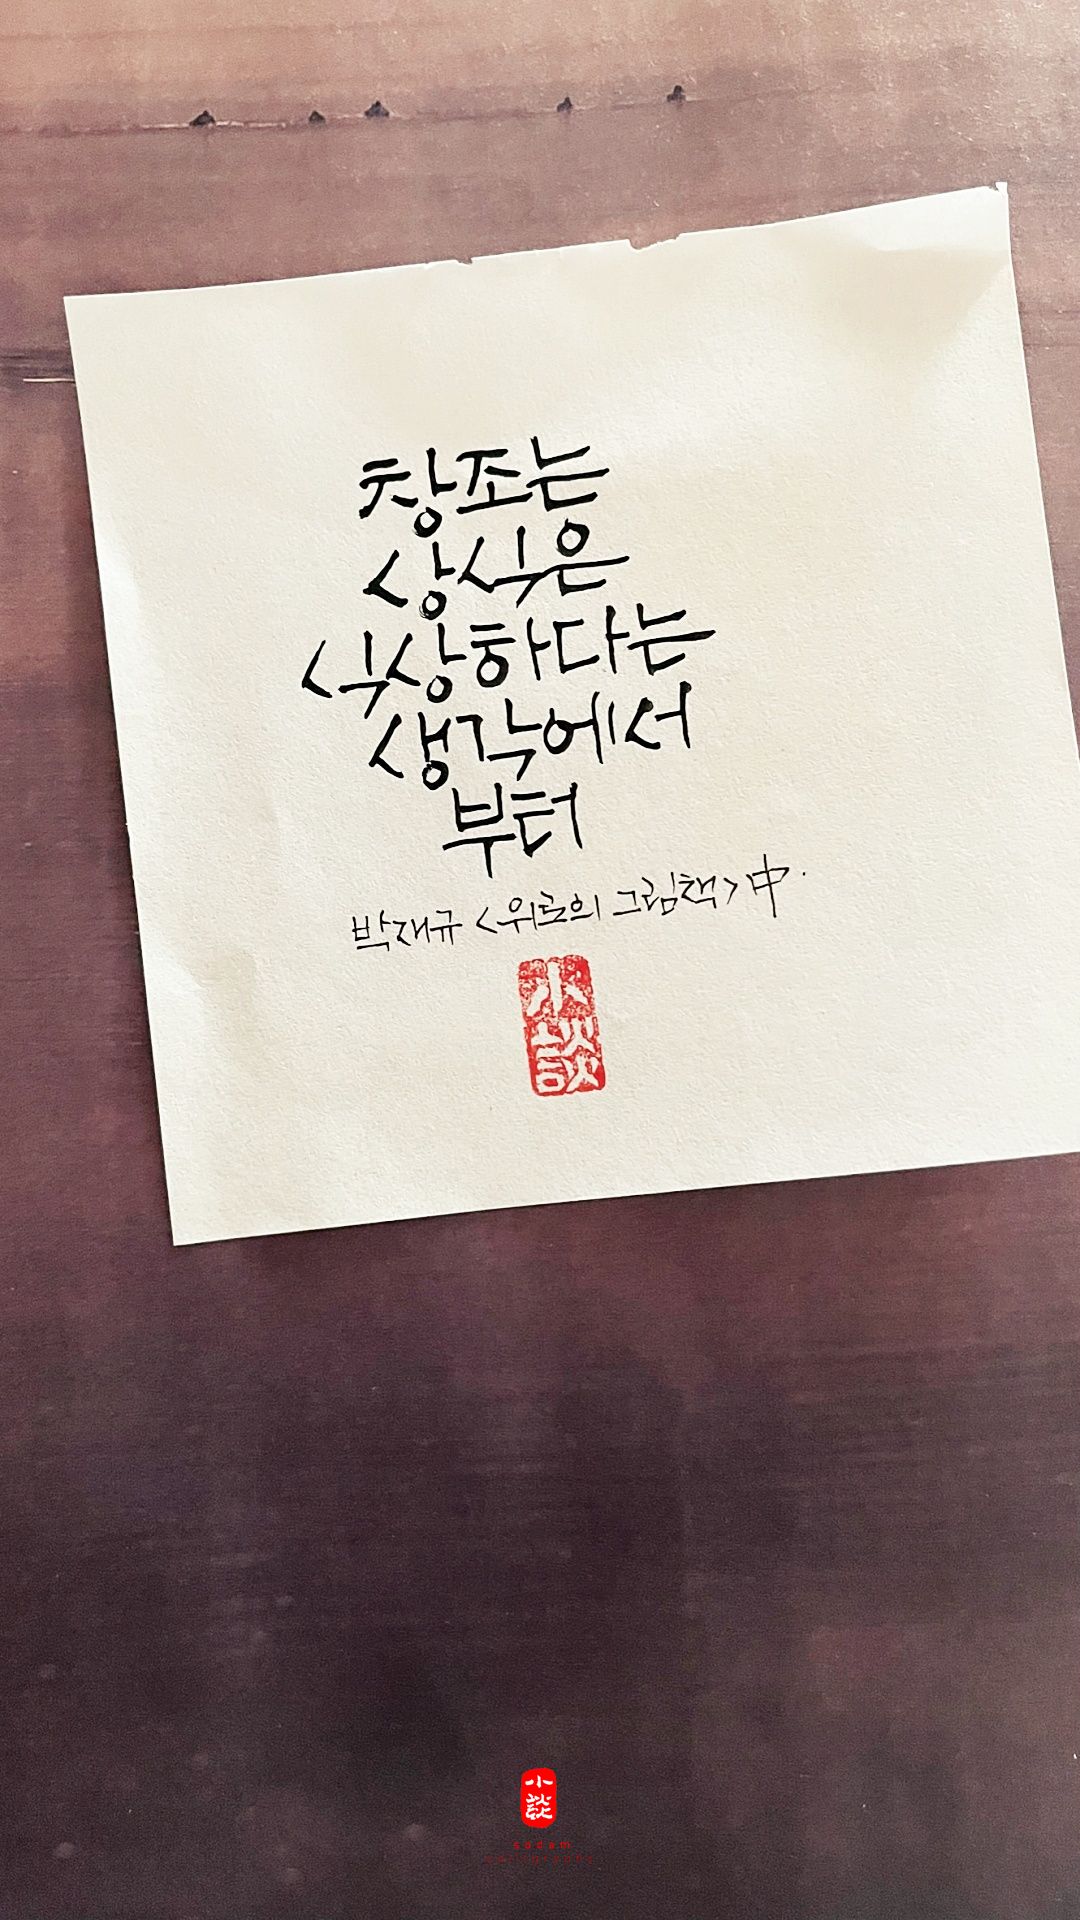 창조는
상식은
식상하다는
생각에서
부터
박재규 <위로의 그림책> 中.
小
談
小
談
sodam
calligraphy